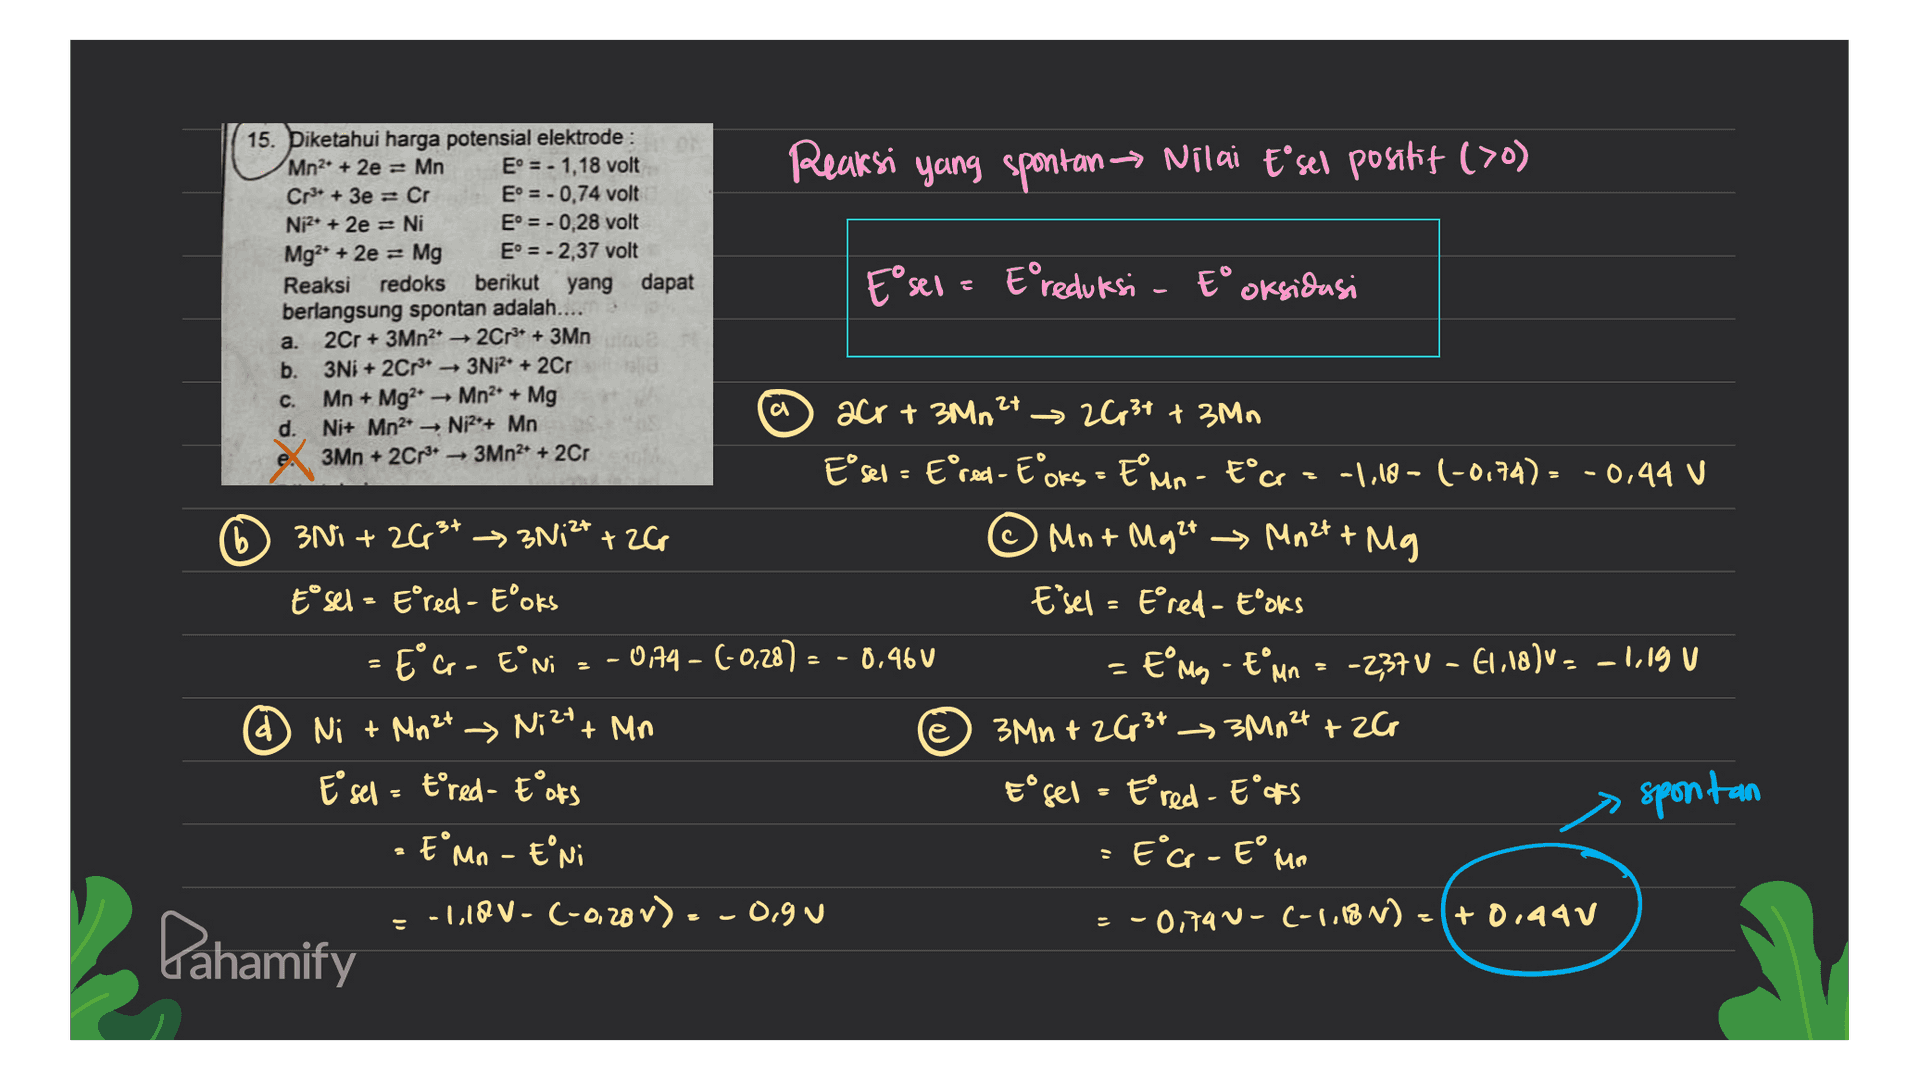 15. Diketahui harga potensial elektrode :
Mn²⁺ + 2e ⇌ Mn E° = - 1,18 volt
Cr³⁺ + 3e ⇌ Cr E° = - 0,74 volt
Ni²⁺ + 2e ⇌ Ni E° = - 0,28 volt
Mg²⁺ + 2e ⇌ Mg E° = - 2,37 volt
Reaksi redoks berikut yang dapat
berlangsung spontan adalah....
a. 2Cr + 3Mn²⁺ → 2Cr³⁺ + 3Mn
b. 3Ni + 2Cr³⁺ → 3Ni²⁺ + 2Cr
c. Mn + Mg²⁺ → Mn²⁺ + Mg
d. Ni+ Mn²⁺ → Ni²⁺+ Mn
e. 3Mn + 2Cr³⁺ → 3Mn²⁺ + 2Cr
Reaksi yang spontan → Nilai E°sel positif (>0)
E°sel = E°reduksi - E°oksidasi
a 2Cr + 3Mn²⁺ → 2Cr³⁺ + 3Mn
E°sel = E°red - E°oks = E°Mn - E°Cr = -1,18 - (-0,74) = -0,44 V
b 3Ni + 2Cr³⁺ → 3Ni²⁺ + 2Cr
E°sel = E°red - E°oks
= E°Cr - E°Ni = -0,74 - (-0,28) = -0,46 V
c Mn + Mg²⁺ → Mn²⁺ + Mg
E°sel = E°red - E°oks
= E°Mg - E°Mn = -2,37 V - (-1,18)V = -1,19 V
d Ni + Mn²⁺ → Ni²⁺ + Mn
E°sel = E°red - E°oks
= E°Mn - E°Ni
= -1,18 V - (-0,28 V) = -0,9 V
e 3Mn + 2Cr³⁺ → 3Mn²⁺ + 2Cr
E°sel = E°red - E°oks
= E°Cr - E°Mn
= -0,74 V - (-1,18 V) = +0,44 V
spontan
Pahamify